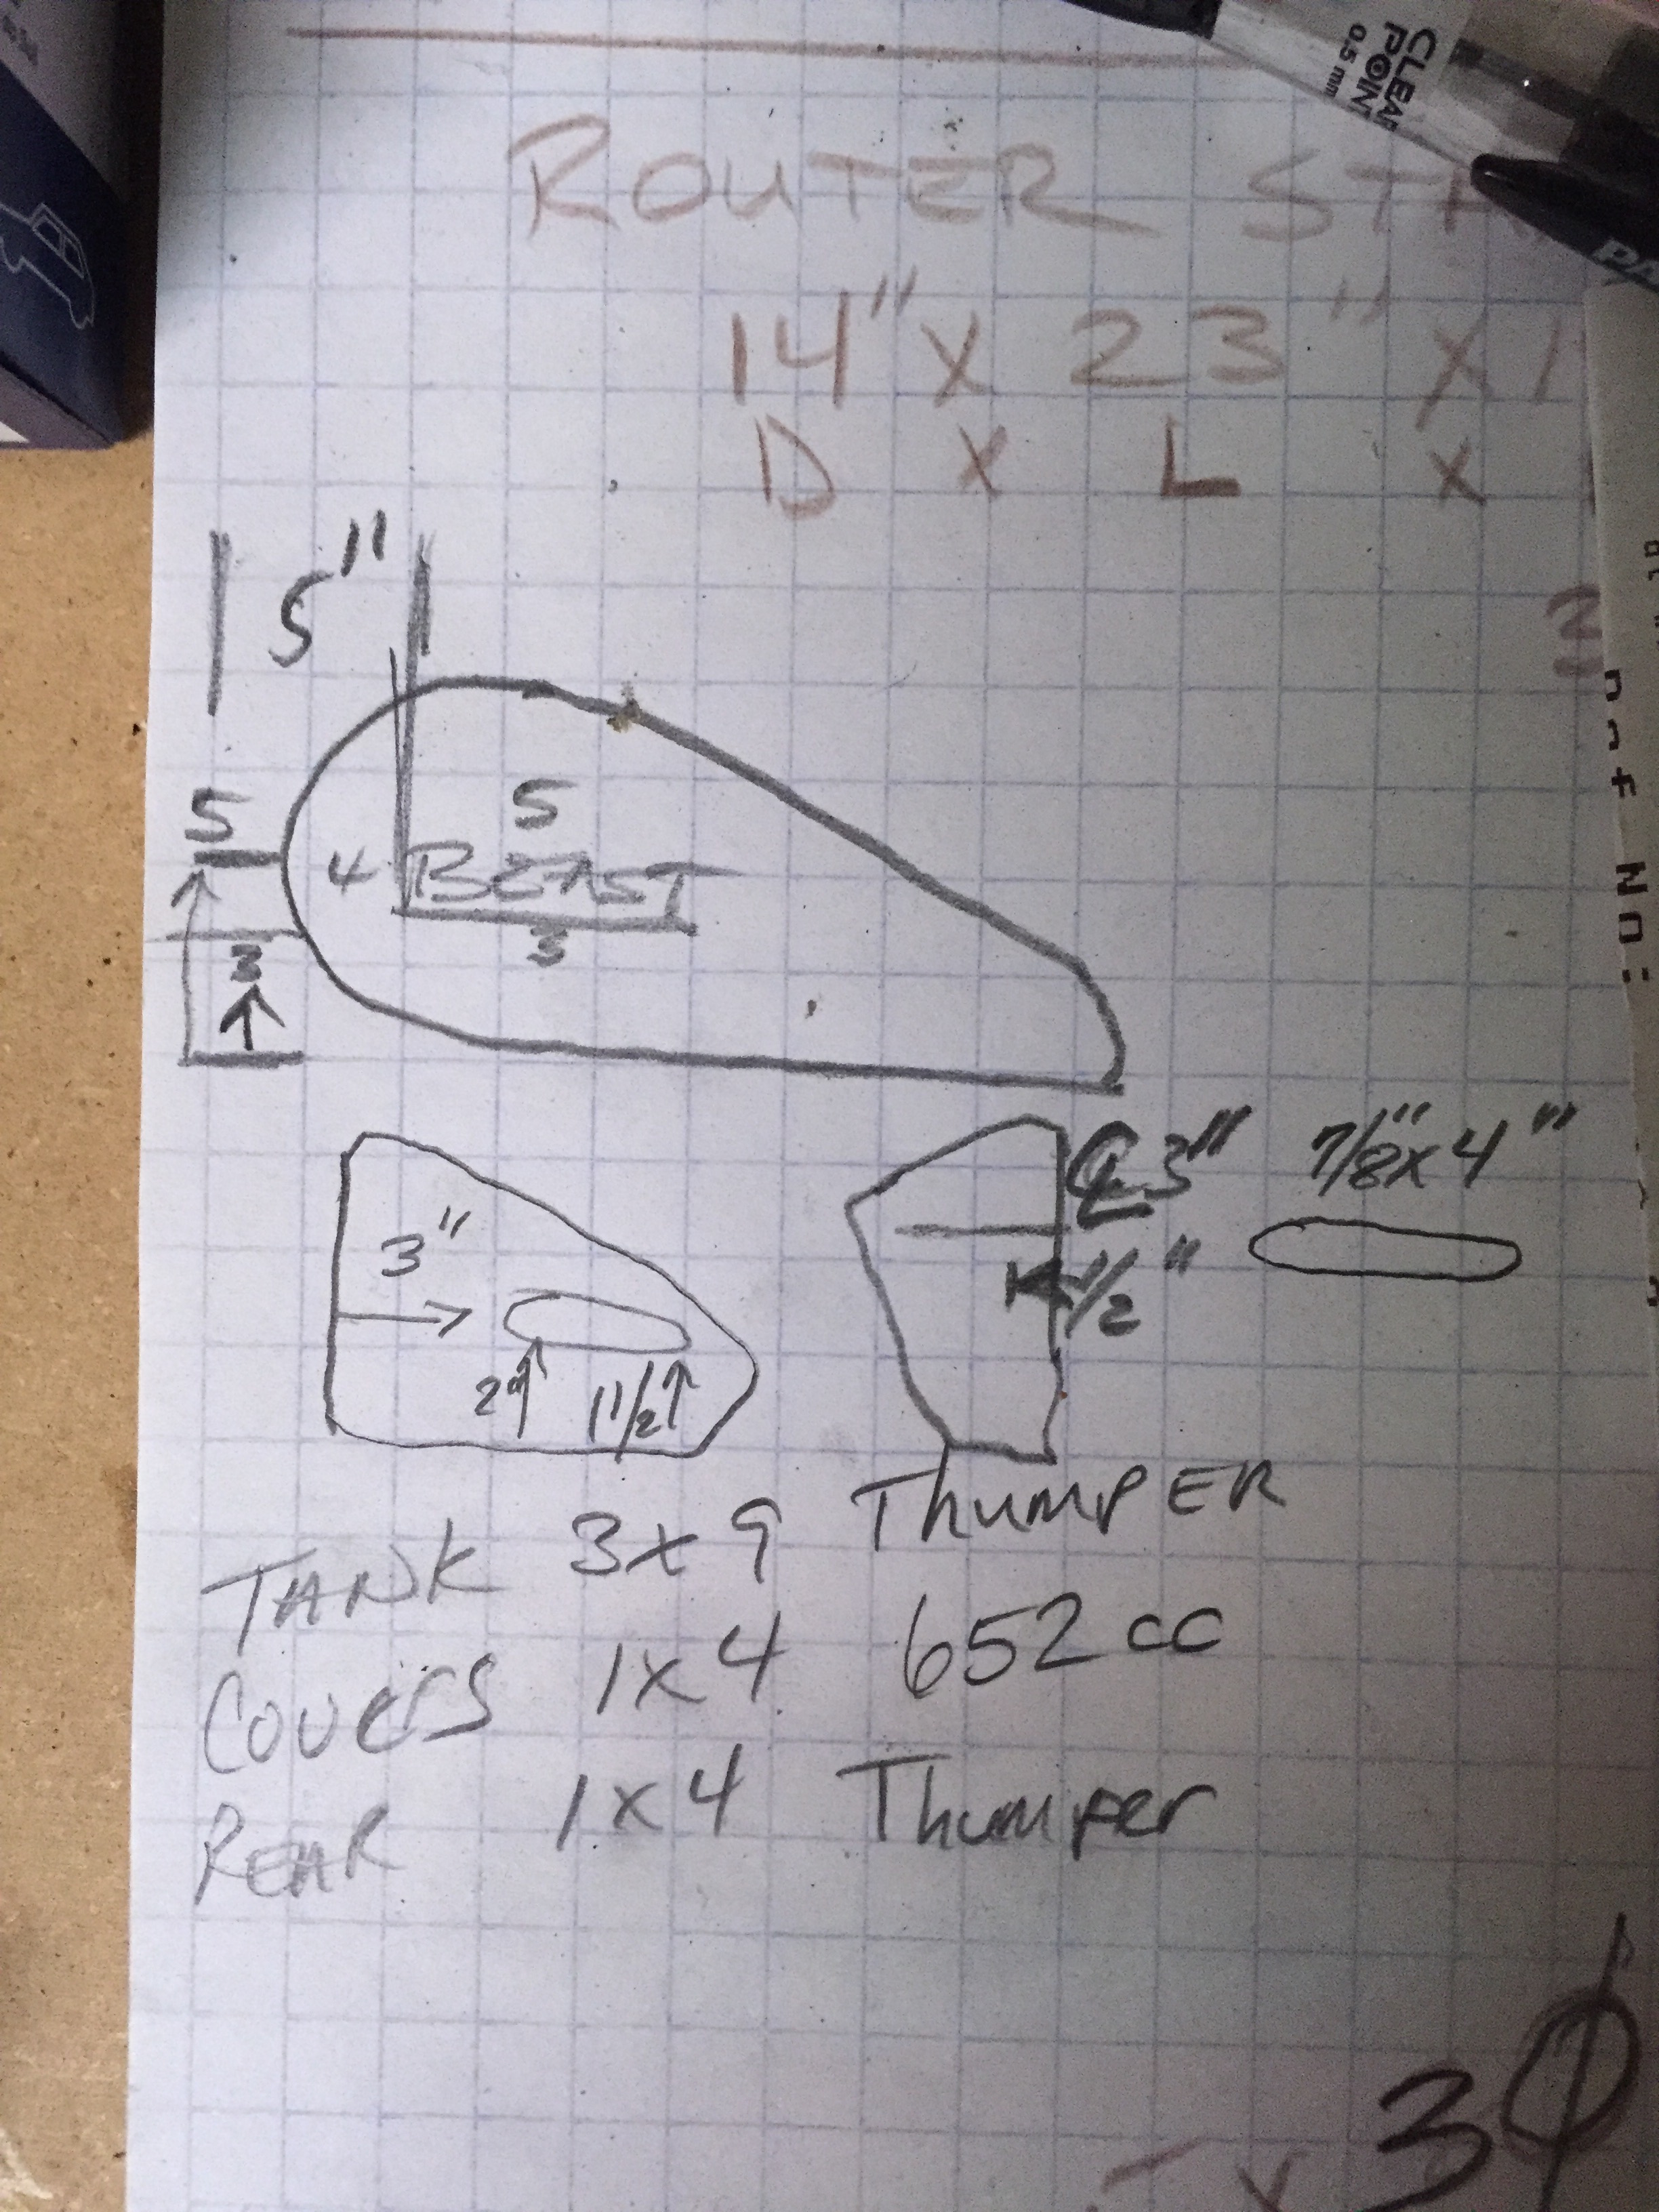 CLEAR
POINT
0.5 mm
PA
ROUTER
14" x 23" x 1
D x L x
5"
5
5
4 BEAST
3
3
3"
7/8" x 4"
3"
1/2"
2"
1 1/2
TANK 3x9 ThumPER
COVERS 1x4 652 cc
REAR 1x4 Thumper
3